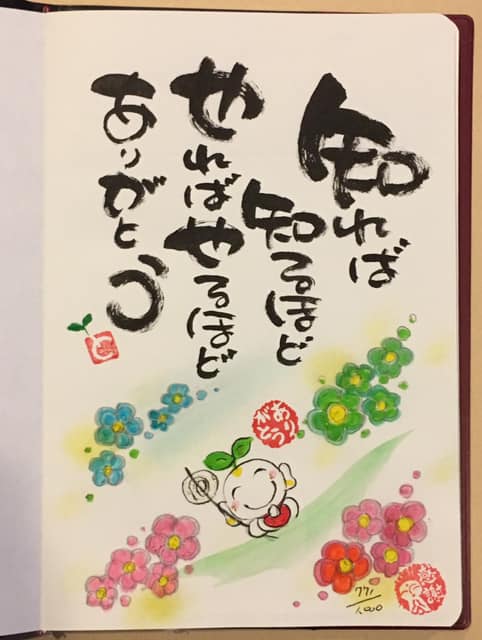 知れば
知るほど
やればやるほど
ありがとう
ありがとう
771/1,000